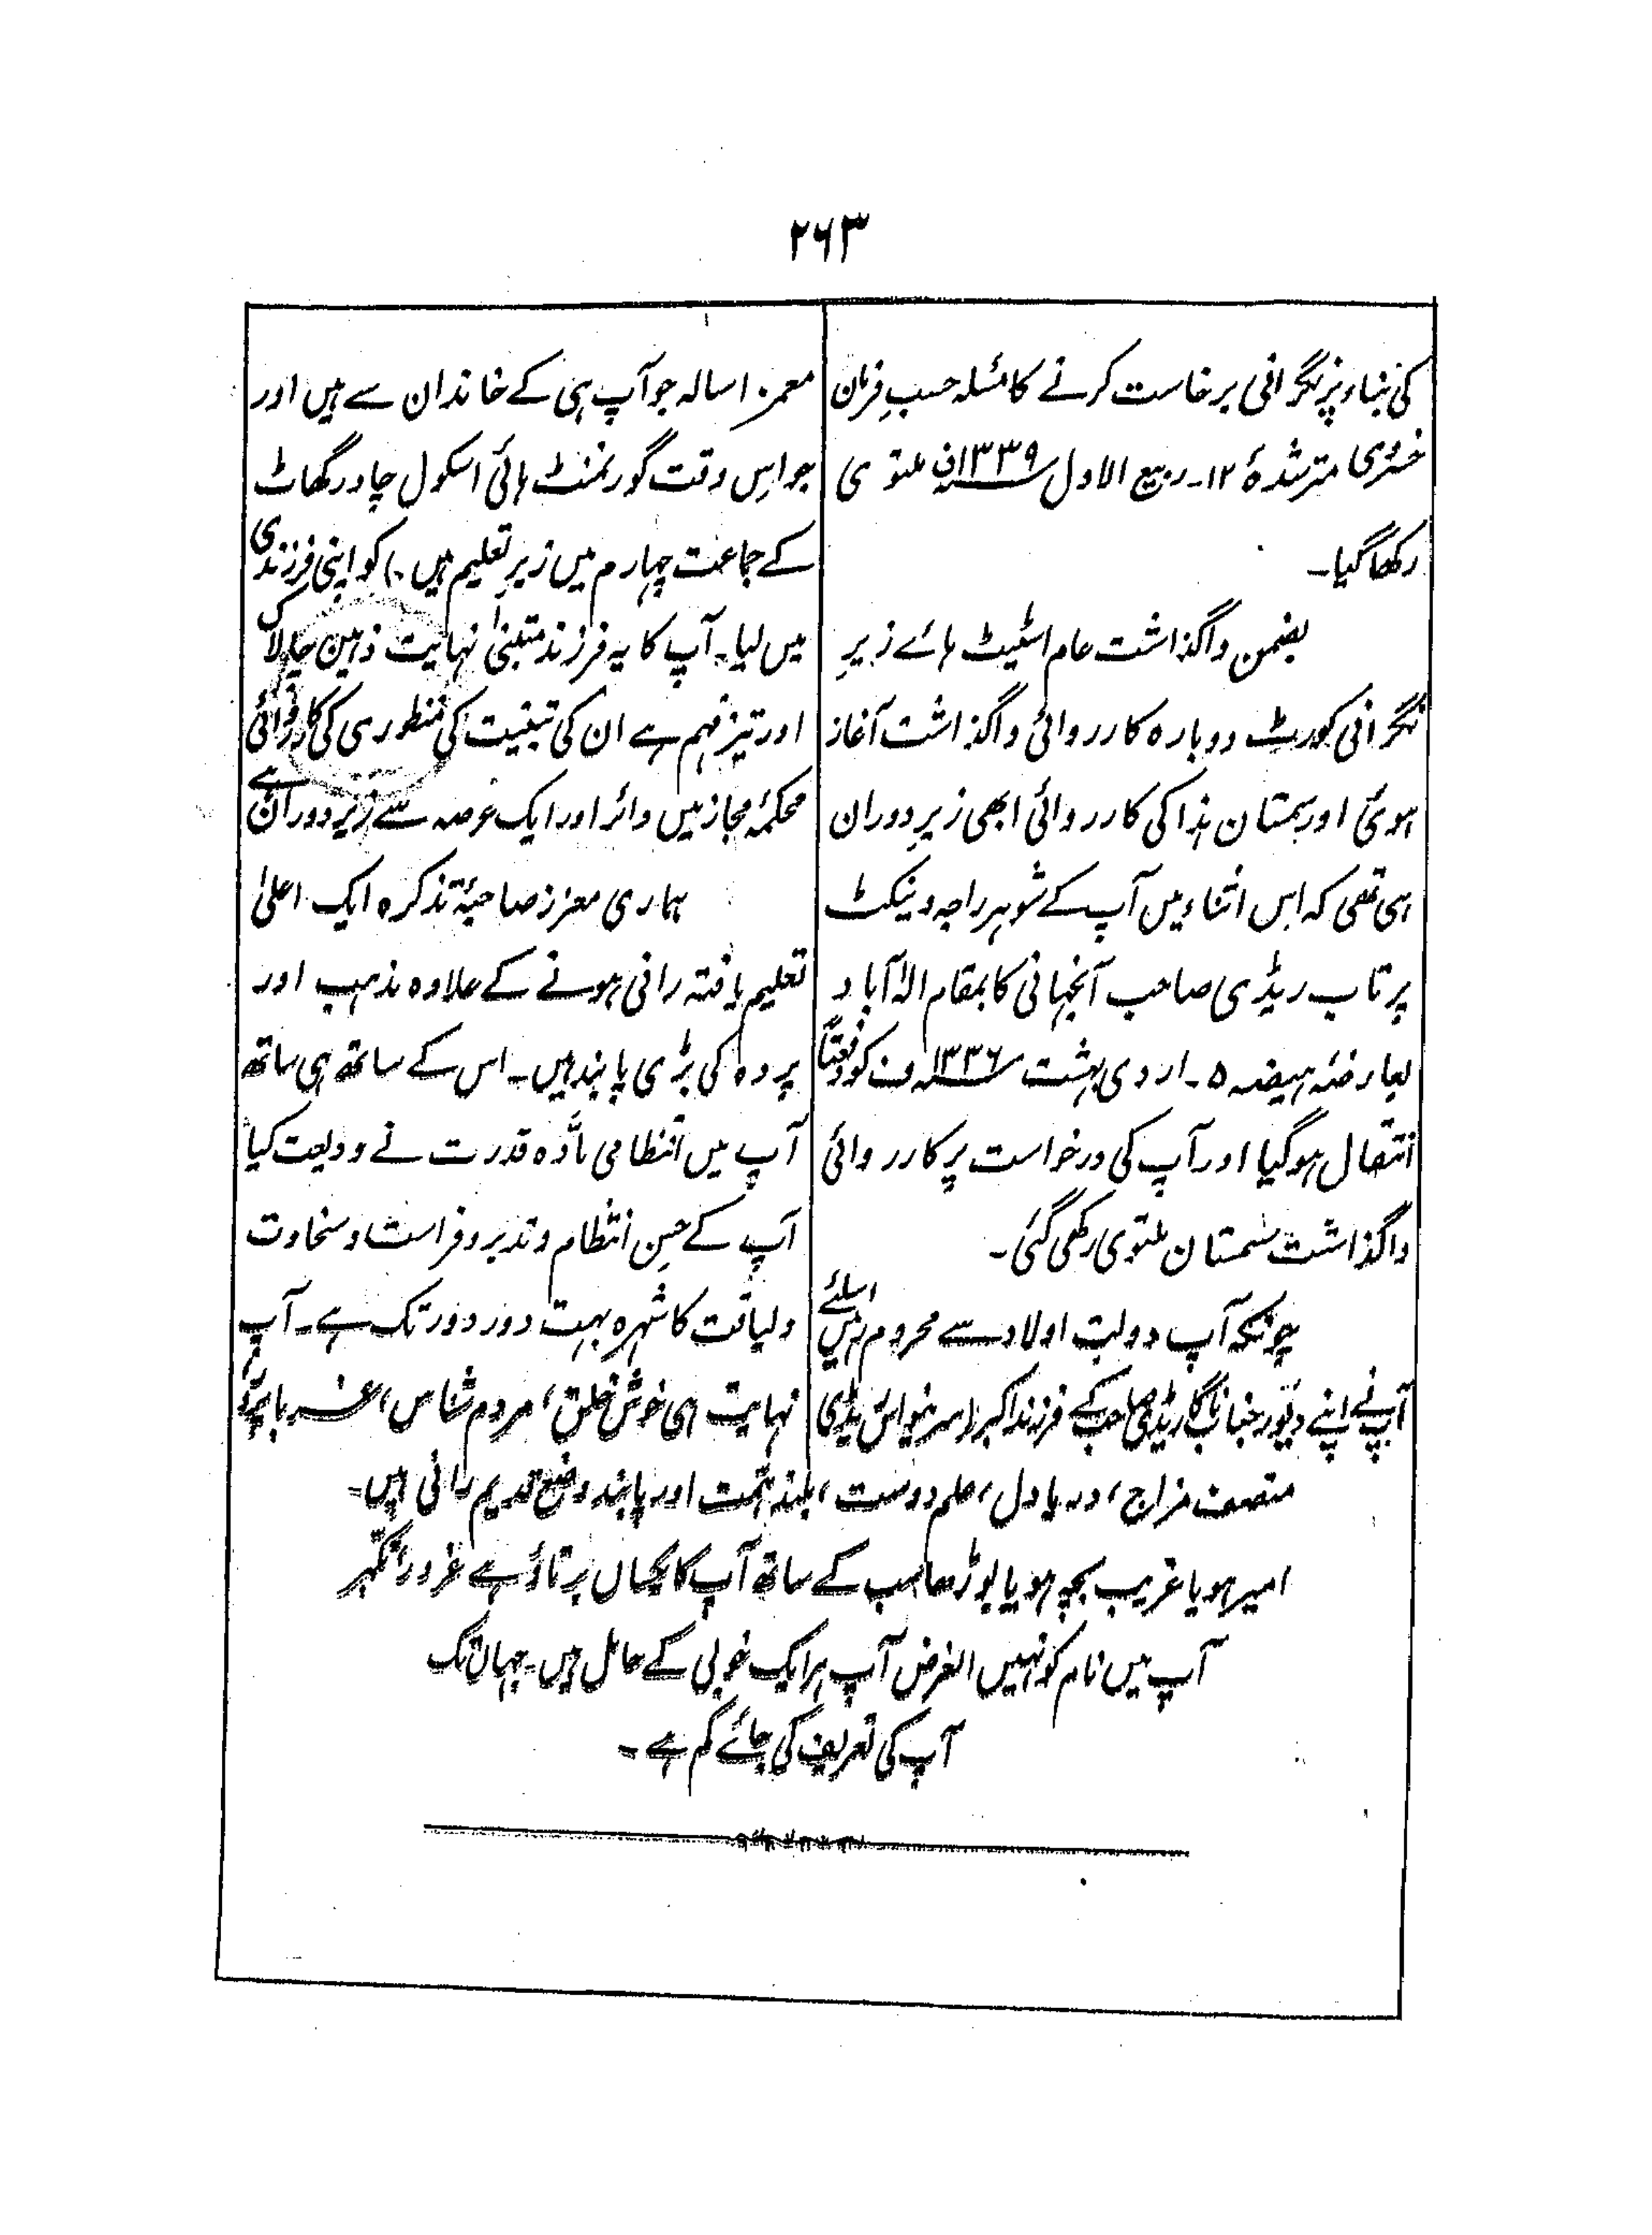 ۲۶۳
کی بناء پر نگرانی برخاست کرنے کا مسئلہ حسبِ فرمان
خسروی مترشدہ ۱۲۔ ربیع الاول ۱۳۳۹ف ملتوی
رکھا گیا۔
بضمن واگذاشت عام اسٹیٹ ہائے زیرِ
نگرانی کورٹ دوبارہ کارروائی واگذاشت آغاز
ہوئی اور سمستان ہذا کی کارروائی ابھی زیرِ دوران
ہی تھی کہ اس اثناء میں آپ کے شوہر راجہ وینکٹ
پرتاب ریڈی صاحب آنجہانی کا بمقام الہ آباد
بعارضئہ ہیضہ ۵۔ اردی بہشت ۱۳۳۶ف کو دفعتاً
انتقال ہوگیا اور آپ کی درخواست پر کارروائی
واگذاشت سمستان ملتوی رکھی گئی۔
چونکہ آپ دولت اولاد سے محروم رہیں اسلئے
آپ نے اپنے دیور جناب رنگاریڈی صاحب کے فرزند اکبر (سرینواس ریڈی
معمر ۰ اسالہ جو آپ ہی کے خاندان سے ہیں اور
جو اس وقت گورنمنٹ ہائی اسکول چادر گھاٹ
کے جماعت چہارم میں زیرِ تعلیم ہیں۔) کو اپنی فرزندی
میں لیا۔ آپ کا یہ فرزند متبنیٰ نہایت ذہین چالاک
اور تیز فہم ہے ان کی تبنیت کی منظوری کی کارروائی
محکمۂ مجاز میں دائر اور ایک عرصہ سے زیر دوران ہے
ہماری معزز صاحبۂ تذکرہ ایک اعلیٰ
تعلیم یافتہ رانی ہونے کے علاوہ مذہب اور
پردہ کی بڑی پابند ہیں۔ اس کے ساتھ ہی ساتھ
آپ میں انتظامی مادّہ قدرت نے ودیعت کیا
آپ کے حسنِ انتظام و تدبر و فراست و سخاوت
و لیاقت کا شہرہ بہت دور دور تک ہے۔ آپ
نہایت ہی خوش خلق، مردم شناس، غرباپرور
منصف مزاج، دریا دل، علم دوست، بلند ہمت اور پابند وضع قدیم رانی ہیں۔
امیر ہو یا غریب بچہ ہو یا بوڑھا سب کے ساتھ آپ کا یکساں برتاؤ ہے غرور و تکبر
آپ میں نام کو نہیں الغرض آپ ہر ایک خوبی کے حامل ہیں۔ جہاں تک
آپ کی تعریف کی جائے کم ہے۔